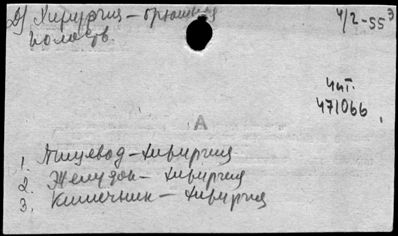 Хирургия – брюшная 4/2-55³
полость
Чит.
471066
А
1. Пищевод – хирургия
2. Желудок – хирургия
3. Кишечник – хирургия